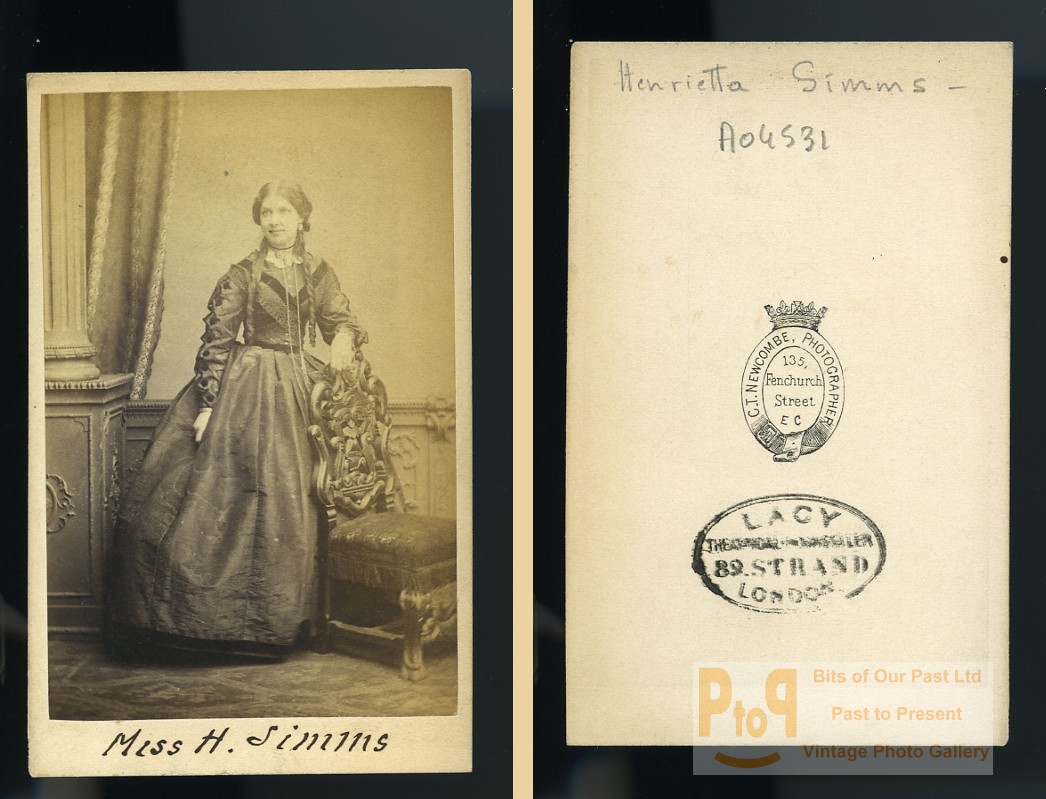 Miss H. Simms
Henrietta Simms -
A04531
C.T. NEWCOMBE, PHOTOGRAPHER
135,
Fenchurch
Street
EC
LACY
THEATRICAL BOOKSELLER
89. STRAND
LONDON.
PtoP
Bits of Our Past Ltd
Past to Present
Vintage Photo Gallery